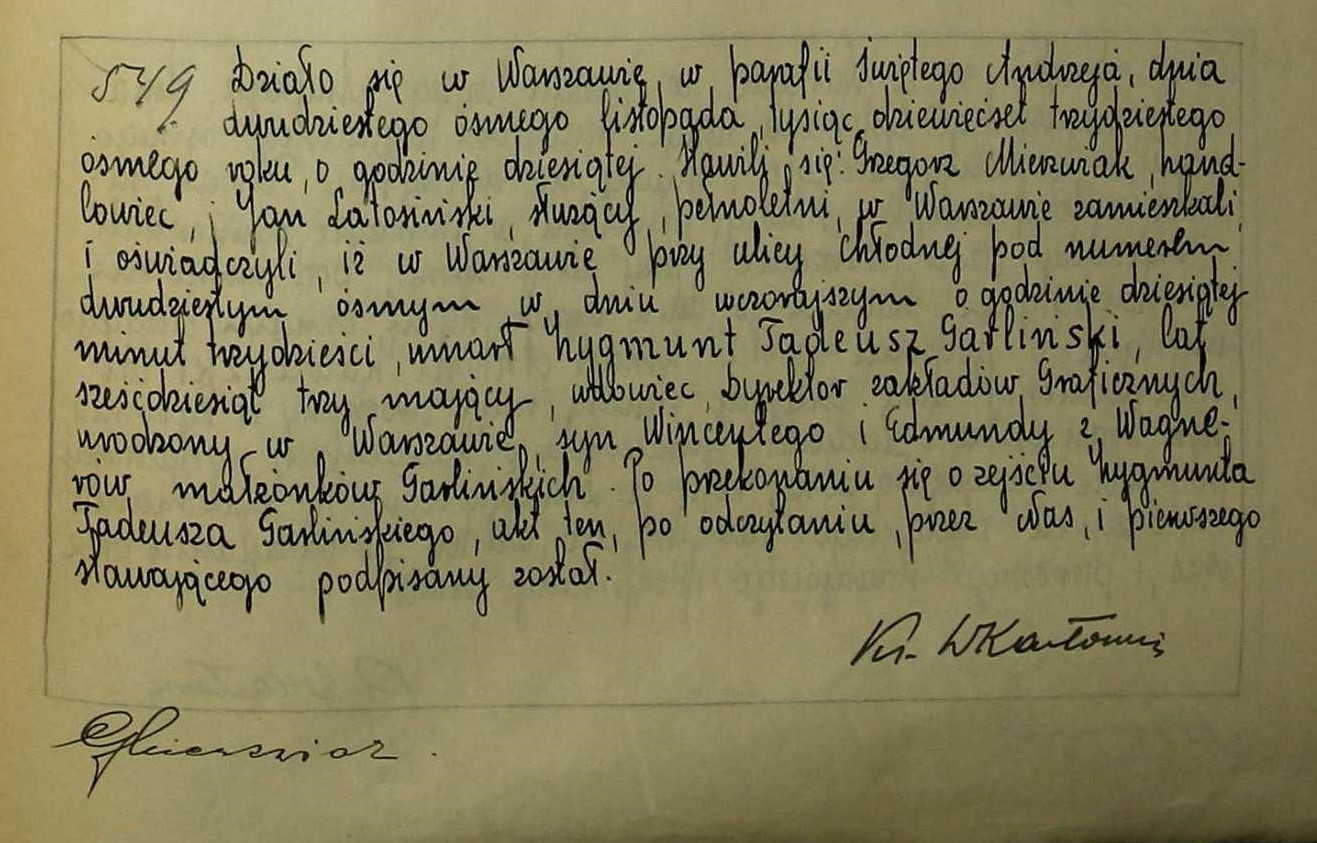 549 Działo się w Warszawie, w parafii Świętego Andrzeja, dnia
dwudziestego ósmego listopada, tysiąc dziewięćset trzydziestego
ósmego roku, o godzinie dziesiątej. Stawili się: Grzegorz Mierzwiak, hand-
lowiec, i Jan Latosiński, służący, pełnoletni, w Warszawie zamieszkali,
i oświadczyli, iż w Warszawie przy ulicy Chłodnej pod numerem
dwudziestym ósmym w dniu wczorajszym o godzinie dziesiątej
minut trzydzieści, umarł Zygmunt Tadeusz Garliński, lat
sześćdziesiąt trzy mający, wdowiec, Dyrektor zakładów Graficznych,
urodzony w Warszawie, syn Wincentego i Edmundy z Wagne-
rów małżonków Garlińskich. Po przekonaniu się o zejściu Zygmunta
Tadeusza Garlińskiego, akt ten, po odczytaniu, przez Nas, i pierwszego
stawającego podpisany został.